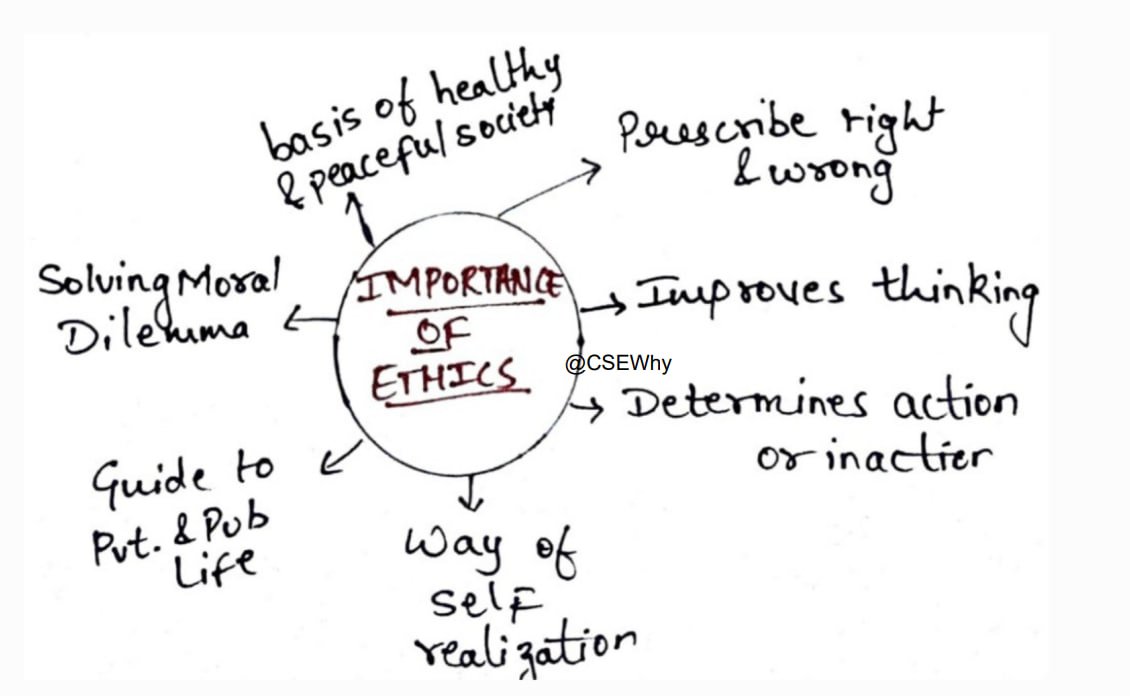 basis of healthy
& peaceful society
Prescribe right
& wrong
Solving Moral
Dilemma
IMPORTANCE
OF
ETHICS
@CSEWhy
Improves thinking
Determines action
or inaction
Guide to
Pvt. & Pub
Life
Way of
self
realization